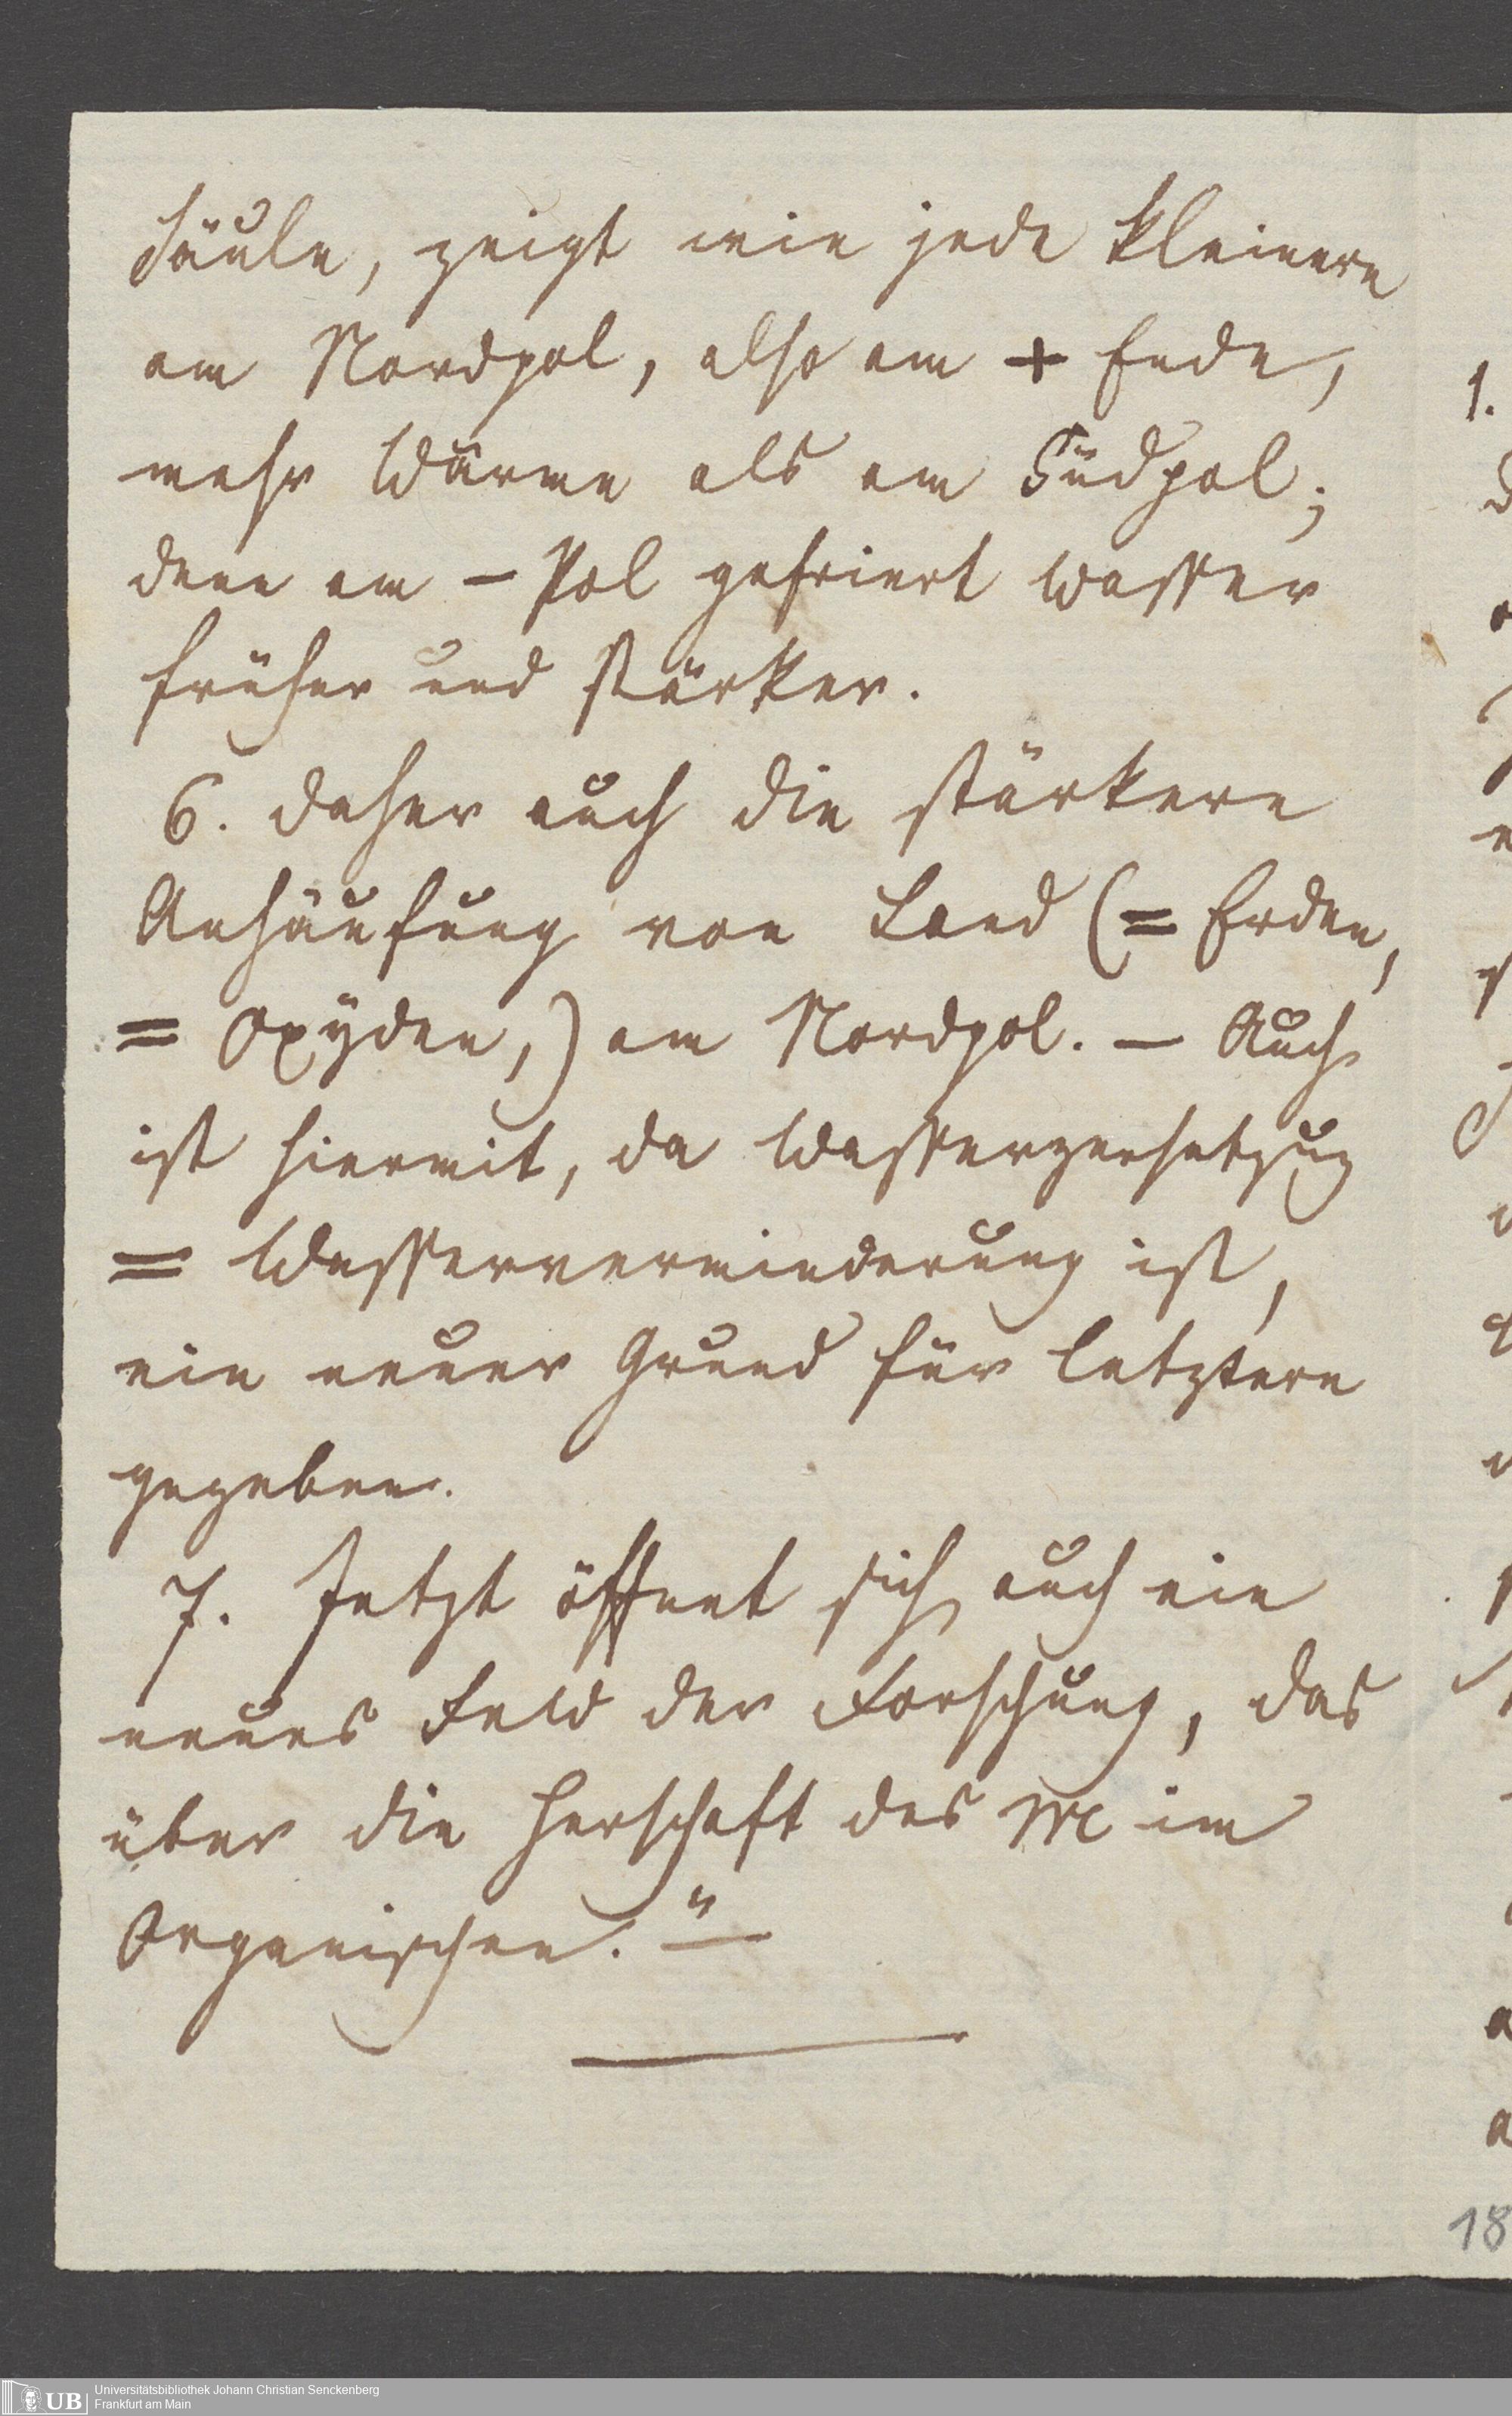 Säule, zeigt wie jede kleinere
am Nordpol, also am + Ende,
mehr Wärme als am Südpol;
denn am – Pol gefriert Wasser
früher und stärker.
6. Daher auch die stärkere
Anhäufung von Land (= Erden,
= Oxÿden,) am Nordpol. — Auch
ist hiermit, da Wasserzersetzug
= Wasserverminderung ist,
ein neuer Grund für letztere
gegeben.
7. Jetzt öffnet sich auch ein
neues Feld der Forschung, das
über die Herschaft des M im
Organischen." —
1.
18
UB
Universitätsbibliothek Johann Christian Senckenberg
Frankfurt am Main